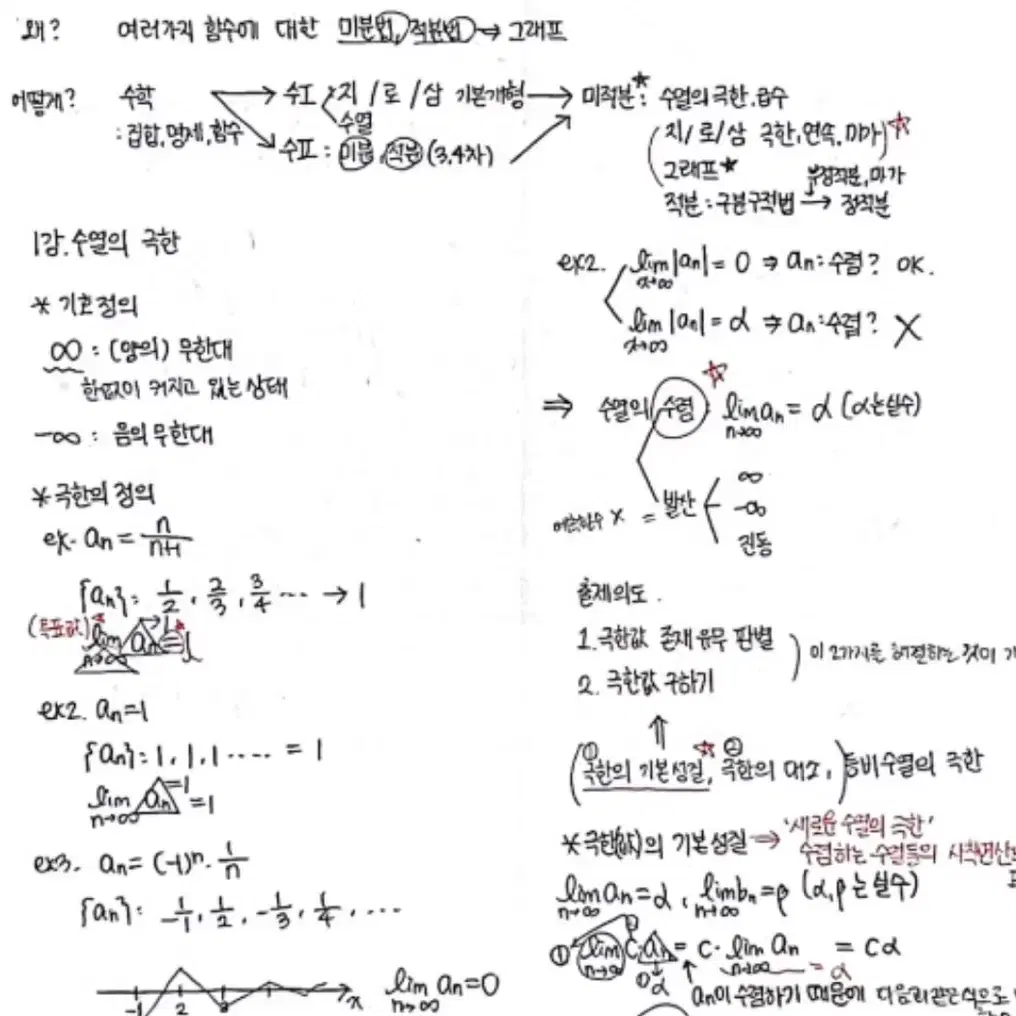 왜? 여러가지 함수에 대한 미분법, 적분법 → 그래프
어떻게? 수학 → 수I 지/로/삼 기본개형 → 미적분★: 수열의 극한, 급수
수열
: 집합, 명제, 함수
수II : 미분, 적분 (3,4차)
(지/로/삼 극한, 연속, 미가)☆
그래프★
부정적분, 미가
적분 : 구분구적법 → 정적분
1강. 수열의 극한
* 기호정의
∞ : (양의) 무한대
한없이 커지고 있는 상태
-∞ : 음의 무한대
* 극한의 정의
ex. an = n/n+1
{an}: 1/2, 2/3, 3/4 ... → 1
(목표값) lim n→∞ an = 1
ex2. an=1
{an}: 1, 1, 1 ..... = 1
lim n→∞ an =1 =1
ex3. an = (-1)ⁿ · 1/n
{an}: -1/1, 1/2, -1/3, 1/4, ...
-1 2 3 x lim n→∞ an = 0
ex2. lim x→∞ |an| = 0 ⇒ an : 수렴? OK.
lim x→∞ |an| = α ⇒ an : 수렴? X
⇒ 수열의 수렴 : lim n→∞ an = α (α는 실수)
X = 발산 ∞
-∞
진동
출제의도.
1. 극한값 존재 유무 판별
2. 극한값 구하기
이 2가지를 해결하는 것이
⇑
(① 극한의 기본성질, ☆ ② 극한의 대소, ) 등비수열의 극한
* 극한(값)의 기본성질 → '새로운 수열의 극한'
수렴하는 수열들의 사칙연산
lim n→∞ an = α, lim n→∞ bn = β (α, β는 실수)
① lim n→∞ ② c·an = c· lim n→∞ an = cα
α = α
an이 수렴하기 때문에